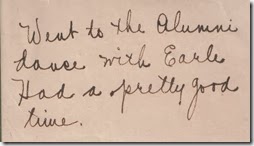 Went to the Alumni
dance with Earle
Had a pretty good
time.